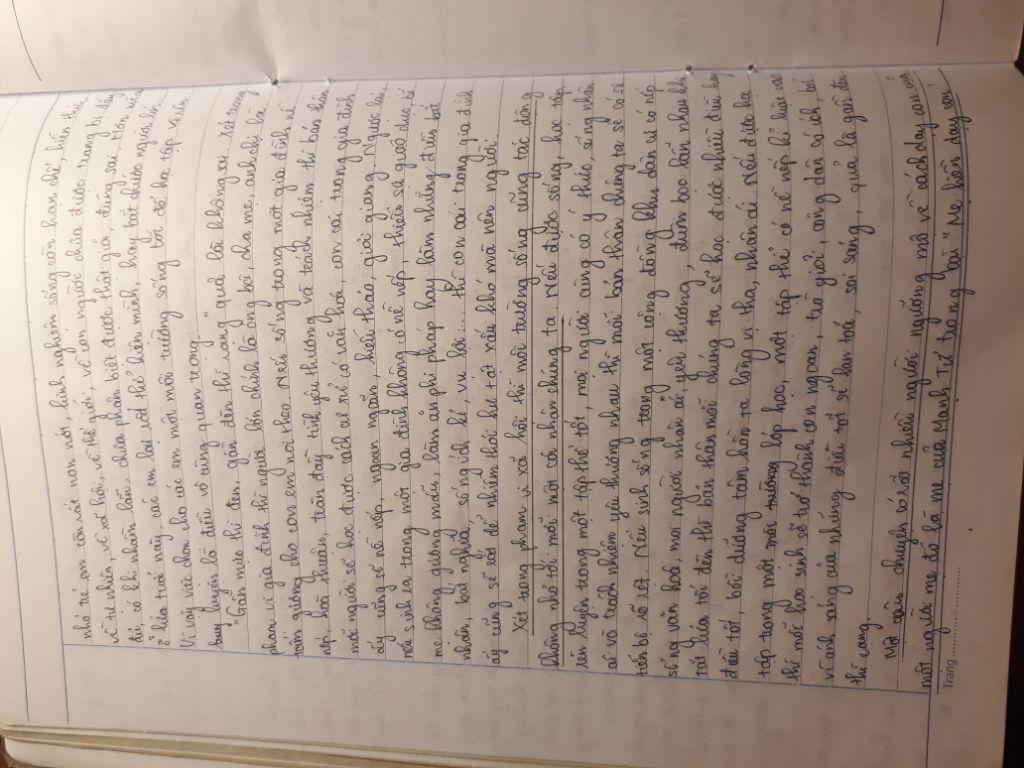 nhỏ trẻ em còn rất non nớt, kinh nghiệm sống còn hạn chế, hiểu biết
về tự nhiên, về xã hội, về thế giới, về con người chưa được trang bị đầy
đủ, có khi nhầm lẫn, chưa phân biệt được thật giả, đúng sai. Hơn nữa
ở lứa tuổi này, các em lại rất thể hiện mình, hay bắt chước người lớn.
Vì vậy việc chọn cho các em một môi trường sống tốt để học tập và rèn
luyện là điều vô cùng quan trọng.
"Gần mực thì đen, gần đèn thì rạng" quả là không sai. Xét trong
phạm vi gia đình thì người lớn chính là ông bà, cha mẹ, anh chị là
tấm gương cho con em noi theo. Nếu sống trong một gia đình nề
nếp, hoà thuận, tràn đầy tình yêu thương và trách nhiệm thì bản thân
mỗi người sẽ học được cách cư xử có văn hoá, con cái trong gia đình
ấy cũng sẽ nề nếp, ngoan ngoãn, hiếu thảo, giỏi giang. Ngược lại,
nếu sinh ra trong một gia đình không có nề nếp, thiếu sự giáo dục, bố
mẹ không gương mẫu, làm ăn phi pháp hay làm những điều bất
nhân, bất nghĩa, sống ích kỉ, vụ lợi... thì con cái trong gia đình
ấy cũng sẽ rất dễ nhiễm thói hư tật xấu khó mà nên người.
Xét trong phạm vi xã hội thì môi trường sống cũng tác động
không nhỏ tới mỗi một cá nhân chúng ta. Nếu được sống, học tập,
rèn luyện trong một tập thể tốt, mọi người cùng có ý thức, sống nhân
ái và trách nhiệm yêu thương nhau thì mỗi bản thân chúng ta sẽ có sự
tiến bộ rõ rệt. Nếu sinh sống trong một cộng đồng khu dân cư có nếp
sống văn hoá, mọi người nhân ái, yêu thương, đùm bọc lẫn nhau khi
tối lửa tắt đèn thì bản thân mỗi chúng ta sẽ học được nhiều điều hay
điều tốt, bồi dưỡng tâm hồn ta lòng vị tha, nhân ái. Nếu được học
tập trong một môi trường lớp học, một tập thể có nề nếp kỉ luật cao
thì mỗi học sinh sẽ trở thành con ngoan, trò giỏi, công dân có ích, bởi
vì ánh sáng của những điều tốt sẽ lan toả, soi sáng, quả là gần đèn
thì rạng.
Một câu chuyện có rất nhiều người ngưỡng mộ về cách dạy con của
một người mẹ đó là mẹ của Mạnh Tử trong bài "Mẹ hiền dạy con".
Trang